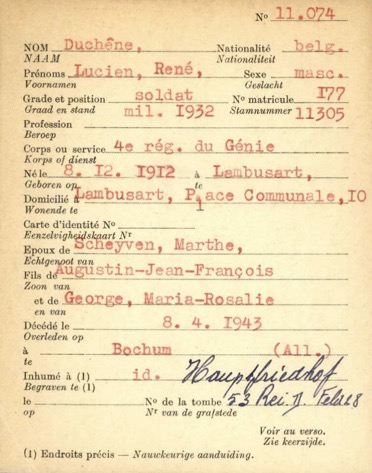 No 11.074
NOM Duchêne, Nationalité belg.
NAAM Nationaliteit
Prénoms Lucien, René, Sexe masc.
Voornamen Geslacht
Grade et position soldat No matricule 177
Graad en stand mil. 1932 Stamnummer 11305
Profession
Beroep
Corps ou service 4e rég. du Génie
Korps of dienst
Né le 8. 12. 1912 à Lambusart,
Geboren op te
Domicilié à Lambusart, Place Communale, 10
Wonende te
Carte d'identité No
Eenzelvigheidskaart Nr
Epoux de Scheyven, Marthe,
Echtgenoot van
Fils de Augustin-Jean-François
Zoon van
et de George, Maria-Rosalie
en van
Décédé le 8. 4. 1943
Overleden op
à Bochum (All.)
te
Inhumé à (1) id. Hauptfriedhof
Begraven te (1)
le No de la tombe 53 Rei. Feld 28
op Nr van de grafstede
Voir au verso.
Zie keerzijde.
(1) Endroits précis — Nauwkeurige aanduiding.